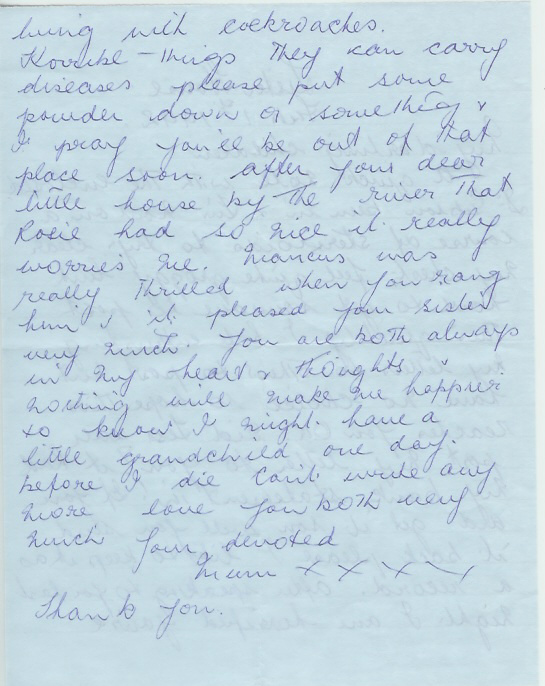 living with cockroaches.
Horrible things they can carry
diseases please put some
powder down or something &
I pray you'll be out of that
place soon. after your dear
little house by the river that
Rosie had so nice it really
worries me. Marcus was
really thrilled when you rang
him & it pleased your sister
very much. You are both always
in my heart & thoughts &
nothing will make me happier
to know I might have a
little grandchild one day.
before I die Can't write any
more love you both very
much Your devoted
Mum x x x x
Thank you.